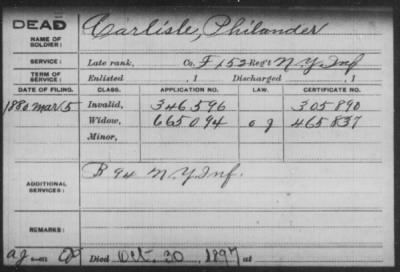 DEAD
NAME OF SOLDIER: Carlisle, Philander
SERVICE: Late rank, Co. F, 152 Reg't N.Y. Inf
TERM OF SERVICE: Enlisted , 1 Discharged , 1
DATE OF FILING. CLASS. APPLICATION NO. LAW. CERTIFICATE NO.
1880 Mar 5 Invalid, 346596 305890
Widow, 665094 o g 465837
Minor,
ADDITIONAL SERVICES: B 94 N.Y. Inf.
REMARKS:
Died Oct. 30, 1897